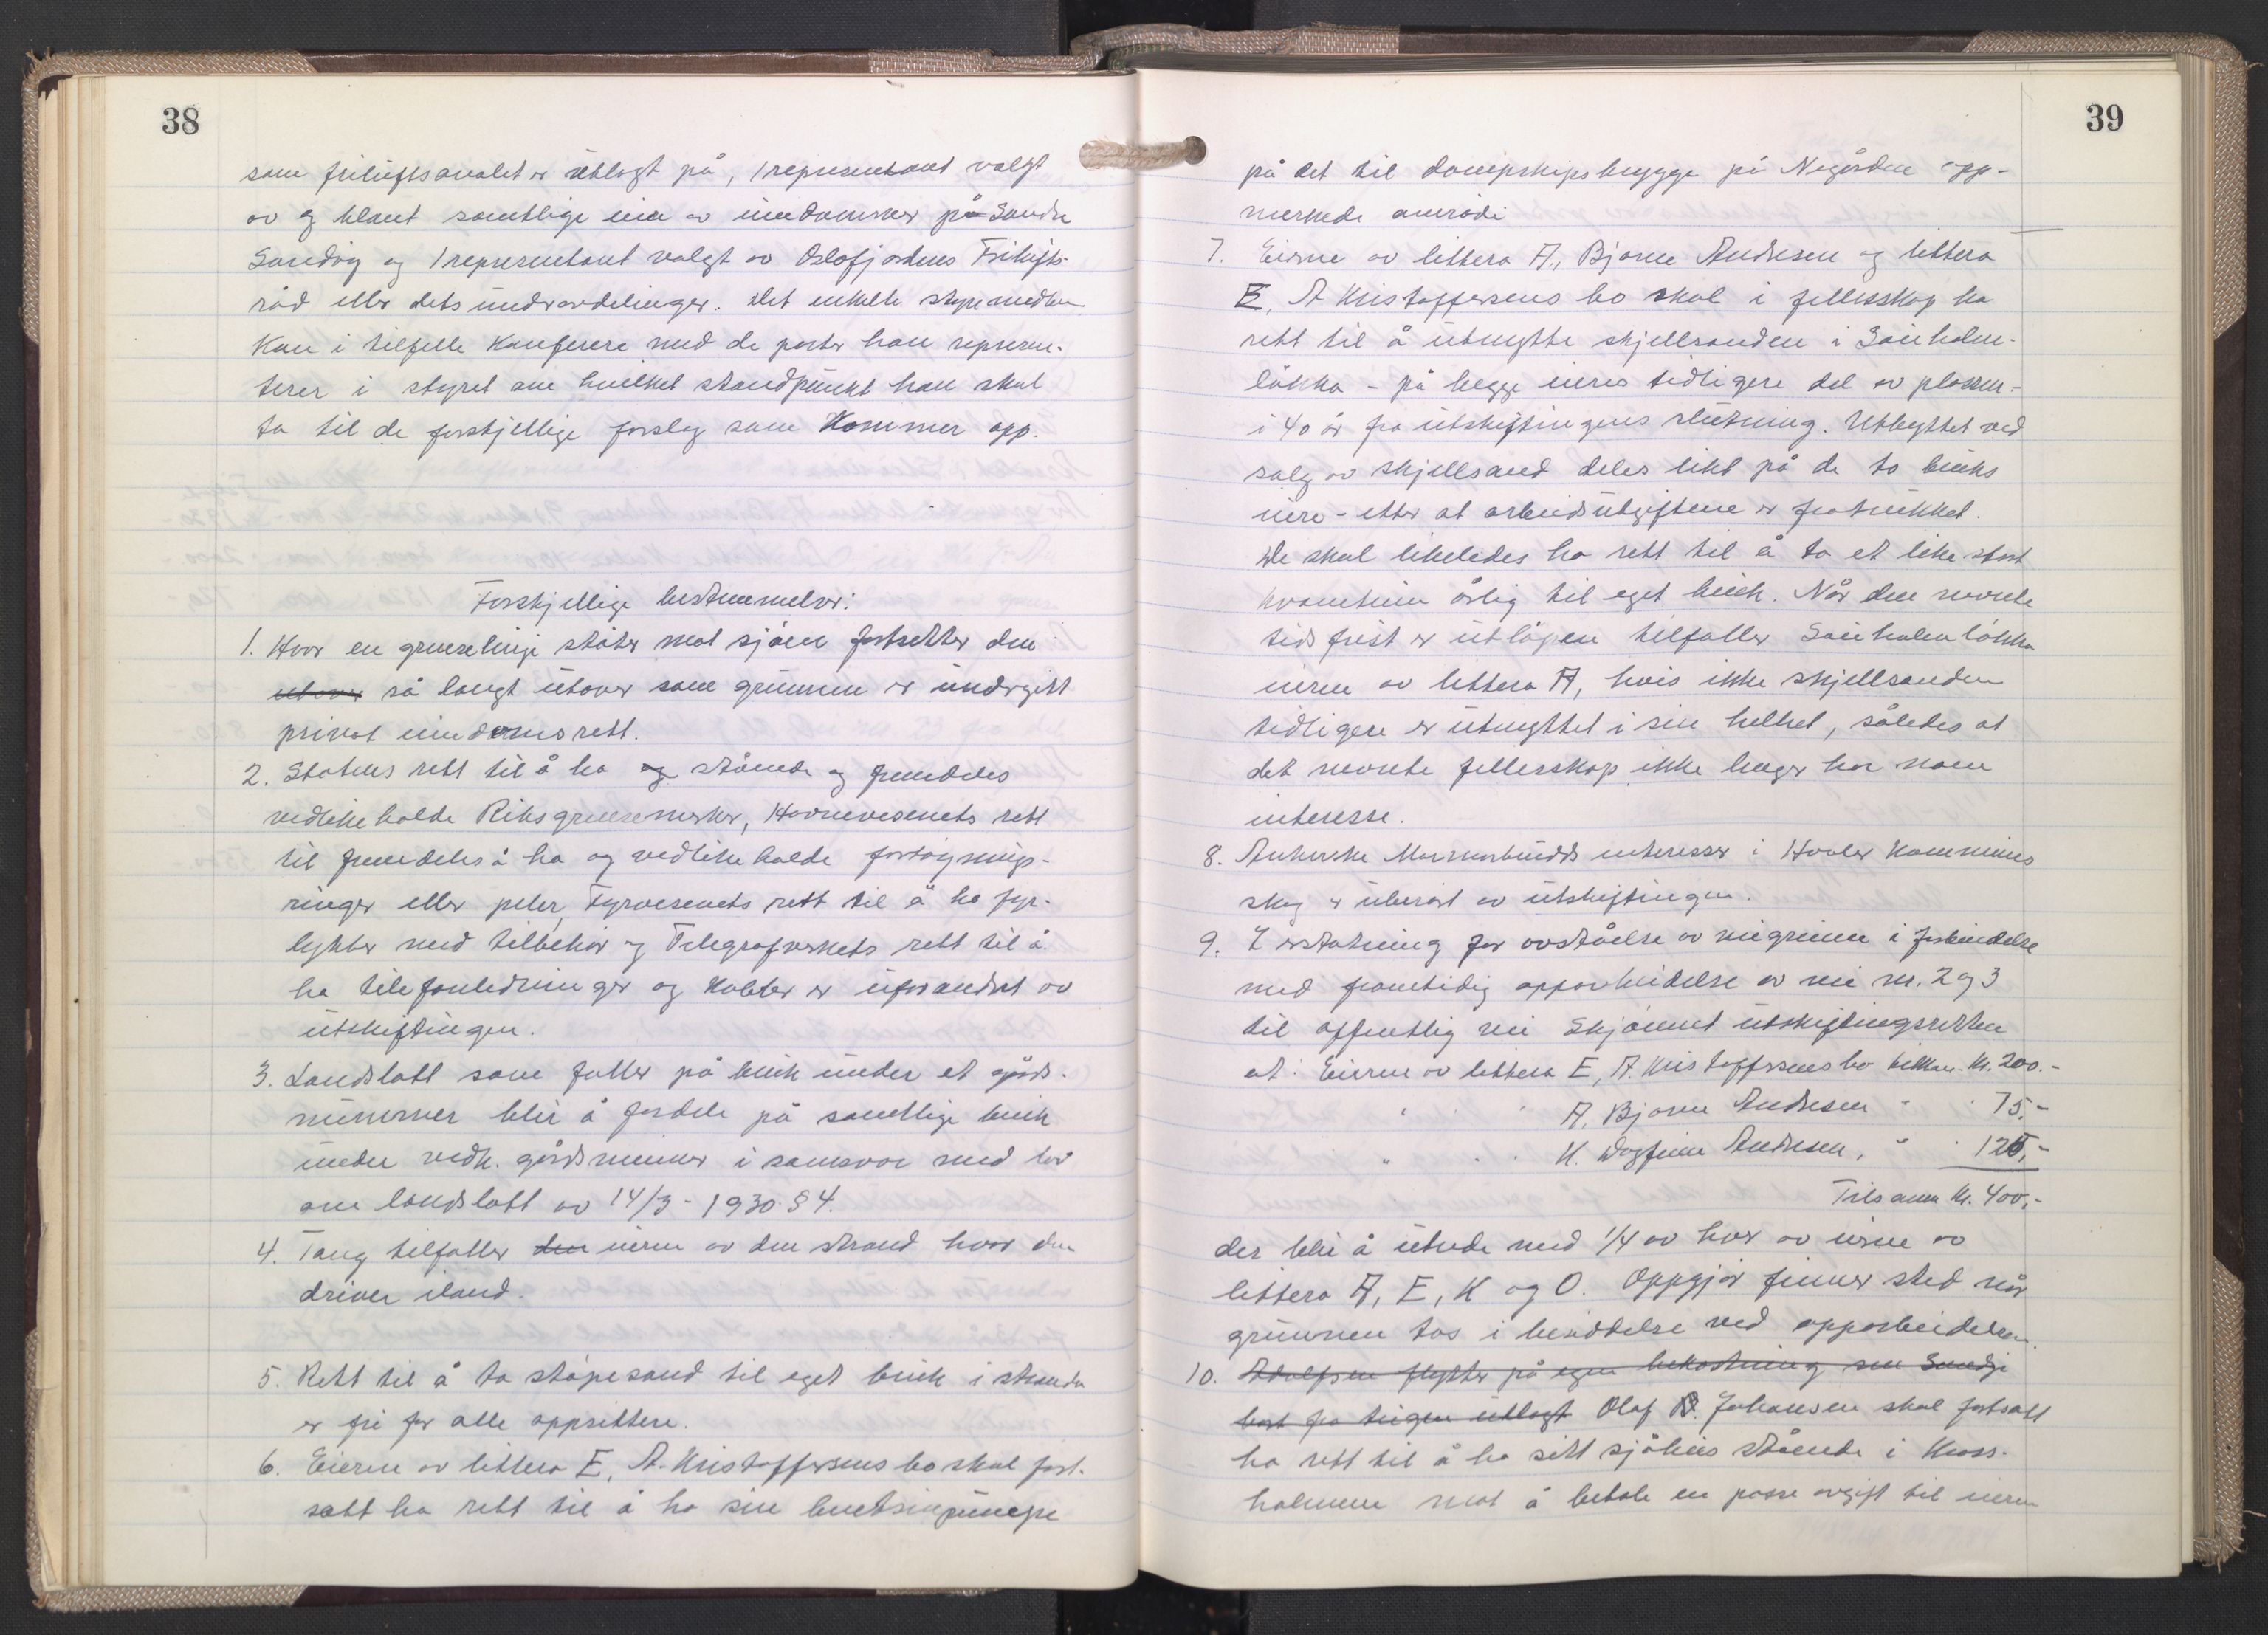 38
som friluftsarealet er utlagt på, 1 representant valgt
av og blant samtlige eiere av eiendommer på Søndre
Sandøy og 1 representant valgt av Oslofjordens Frilufts-
råd eller dets underavdelinger. Det enkelte styremedlem
kan i tilfelle konferere med de parter han represen-
terer i styret om hvilket standpunkt han skal
ta til de forskjellige forslag som kommer opp.
Forskjellige bestemmelser:
1. Hvor en grenselinje støter mot sjøen fortsetter den
utover så langt utover som grunnen er undergitt
privat eiendomsrett.
2. Statens rett til å ha og stående og fremdeles
vedlikeholde Riksgrensemerker, Havnevesenets rett
til fremdeles å ha og vedlikeholde fortøynings-
ringer eller peler, Fyrvesenets rett til å ha fyr-
lykter med tilbehør og Telegrafverkets rett til å
ha telefonledninger og kabler er uforandret av
utskiftingen.
3. Landslott som faller på bruk under et gårds-
nummer blir å fordele på samtlige bruk
under vedk. gårdsnummer i samsvar med lov
om landslott av 14/3 - 1930 § 4.
4. Tang tilfaller den eieren av den strand hvor den
driver iland.
5. Rett til å ta støpesand til eget bruk i stranda
er fri for alle oppsittere.
6. Eieren av littera E, A. Kristoffersens bo skal fort-
satt ha rett til å ha sin bensinpumpe
39
på det til dampskipsbrygge på Negården opp-
merkede område
7. Eierne av littera A, Bjarne Andresen og littera
E, A Kristoffersens bo skal i fellesskap ha
rett til å utnytte skjellsanden i Sauholm-
løkka - på begge eieres tidligere del av plassen -
i 40 år fra utskiftingens slutning. Utbyttet ved
salg av skjellsand deles likt på de to bruks
eiere - etter at arbeidsutgiftene er fratrukket.
De skal likeledes ha rett til å ta et like stort
kvantum årlig til eget bruk. Når den nevnte
tidsfrist er utløpen tilfaller Sauholmløkka
eieren av littera A, hvis ikke skjellsanden
tidligere er utnyttet i sin helhet, således at
det nevnte fellesskap ikke lenger har noen
interesse.
8. Ankerske Marmorbrudds interesser i Hvaler kommunes
skog er uberørt av utskiftingen.
9. I erstatning for avståelse av veigrunn i forbindelse
med framtidig opparbeidelse av vei nr. 2 og 3
til offentlig vei skjønnet utskiftingsretten
at: Eieren av littera E, A. Kristoffersens bo tilkom. kr. 200.-
" " " A. Bjarne Andresen " " 75.-
" " " K. Dagfinn Andresen, " " 125,-
Tilsamm kr. 400,-
der blir å utrede med 1/4 av hver av eierne av
littera A, E, K og O. Oppgjør finner sted når
grunnen tas i besiddelse ved opparbeidelsen.
10. Adolfsen flytter på egen bekostning sin
bort fra teigen utlagt Olaf B. Johansen skal fortsatt
ha rett til å ha sitt sjøhus stående i Kross-
holmen mot å betale en passe avgift til eieren